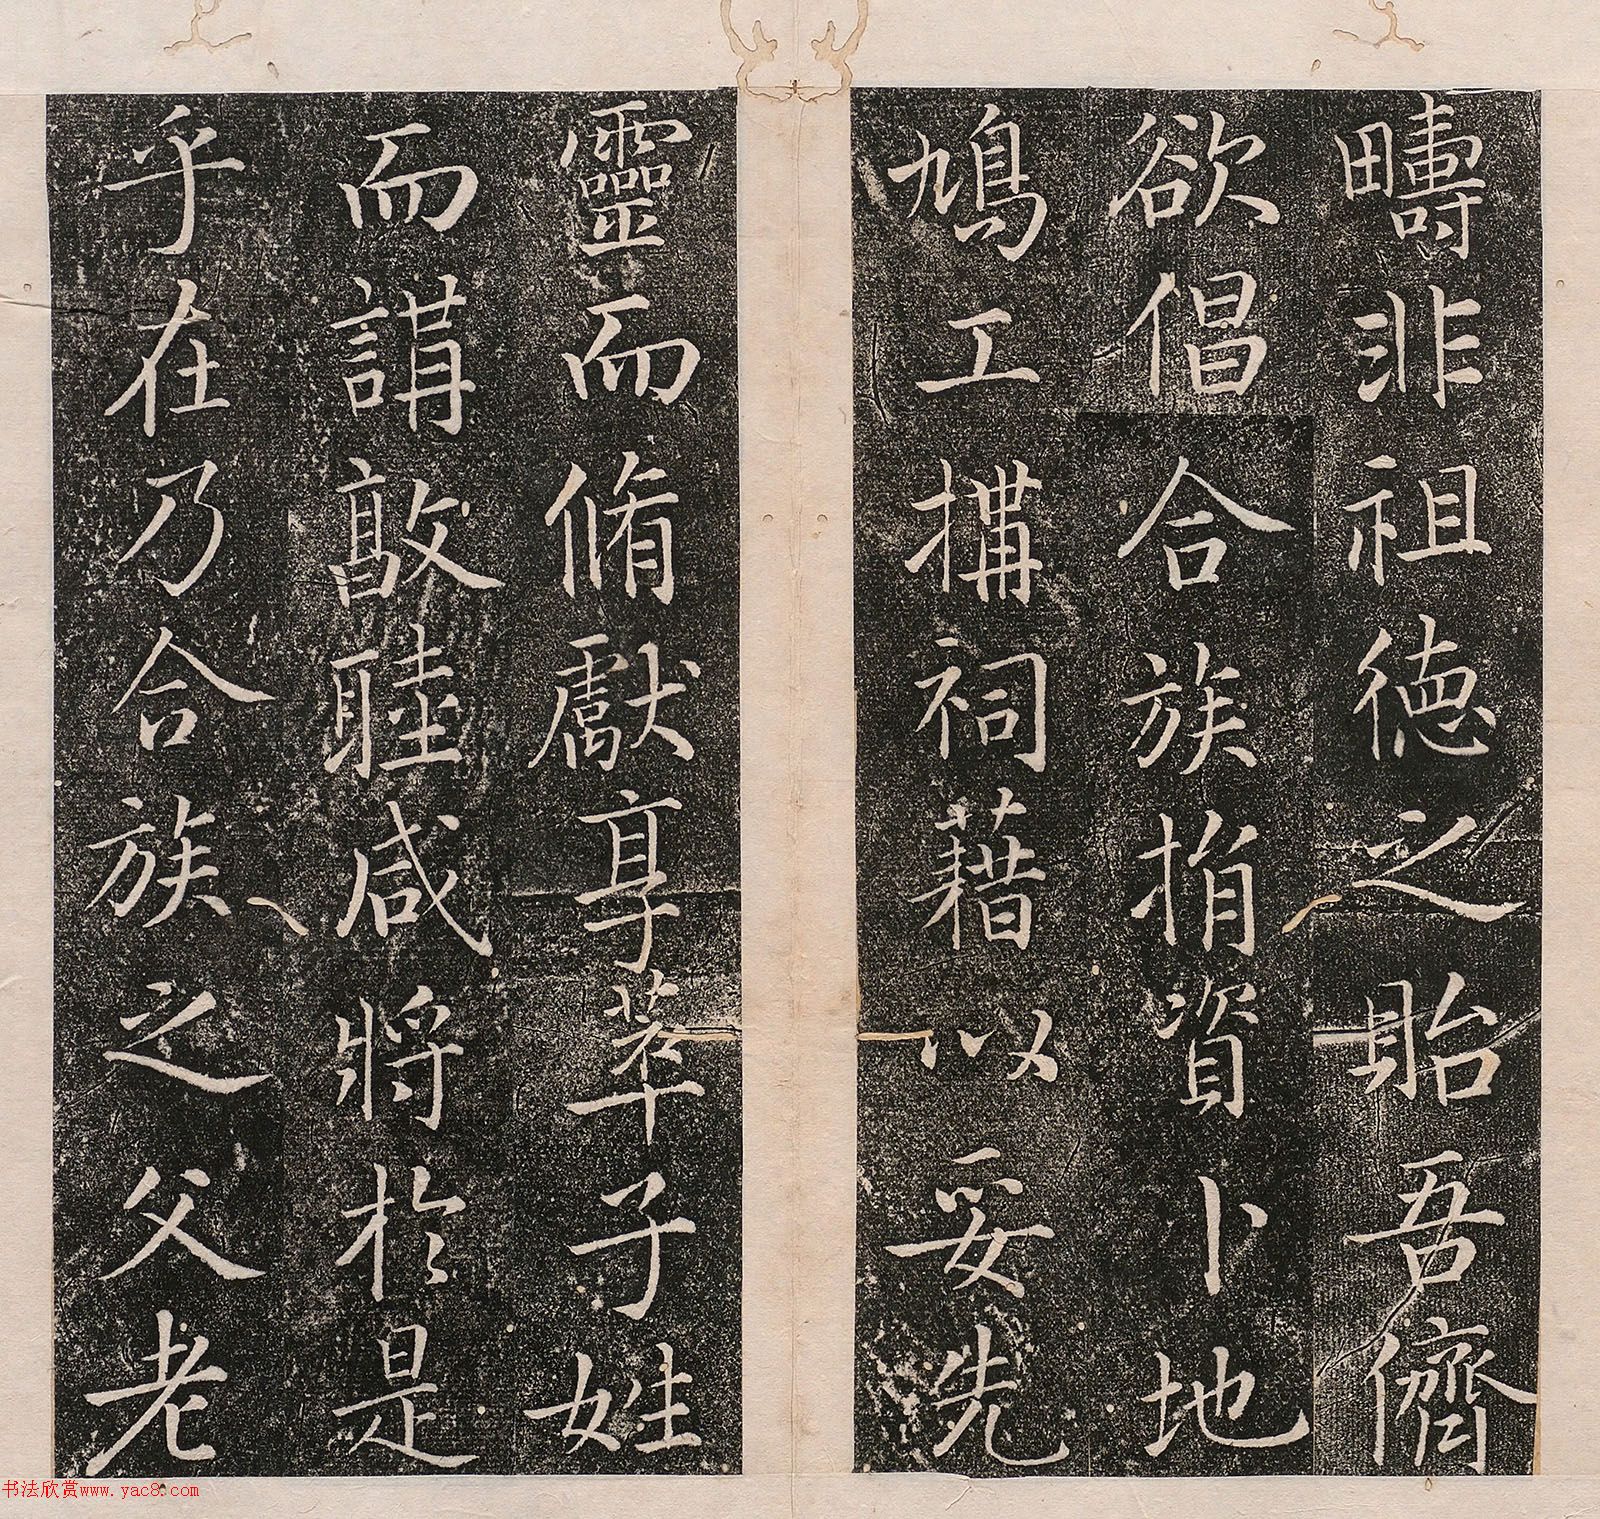 疇非祖德之貽吾儕
欲倡合族捐資卜地
鳩工搆祠藉以妥先
靈而脩獻享萃子姓
而講敦睦咸將於是
乎在乃合族之父老
书法欣赏www.yac8.com